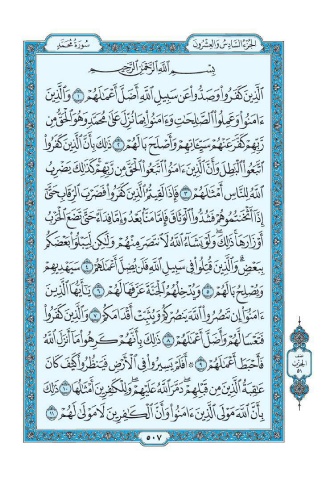 الجزء السادس والعشرون
سورة محمد
بِسْمِ اللَّهِ الرَّحْمَٰنِ الرَّحِيمِ
الَّذِينَ كَفَرُوا وَصَدُّوا عَن سَبِيلِ اللَّهِ أَضَلَّ أَعْمَٰلَهُمْ ١ وَالَّذِينَ
ءَامَنُوا وَعَمِلُوا الصَّٰلِحَٰتِ وَءَامَنُوا بِمَا نُزِّلَ عَلَىٰ مُحَمَّدٍ وَهُوَ الْحَقُّ مِن
رَّبِّهِمْ كَفَّرَ عَنْهُمْ سَيِّـَٔاتِهِمْ وَأَصْلَحَ بَالَهُمْ ٢ ذَٰلِكَ بِأَنَّ الَّذِينَ كَفَرُوا
اتَّبَعُوا الْبَٰطِلَ وَأَنَّ الَّذِينَ ءَامَنُوا اتَّبَعُوا الْحَقَّ مِن رَّبِّهِمْ كَذَٰلِكَ يَضْرِبُ
اللَّهُ لِلنَّاسِ أَمْثَٰلَهُمْ ٣ فَإِذَا لَقِيتُمُ الَّذِينَ كَفَرُوا فَضَرْبَ الرِّقَابِ حَتَّىٰ
إِذَا أَثْخَنتُمُوهُمْ فَشُدُّوا الْوَثَاقَ فَإِمَّا مَنًّا بَعْدُ وَإِمَّا فِدَاءً حَتَّىٰ تَضَعَ الْحَرْبُ
أَوْزَارَهَا ذَٰلِكَ وَلَوْ يَشَاءُ اللَّهُ لَانتَصَرَ مِنْهُمْ وَلَٰكِن لِّيَبْلُوَا بَعْضَكُم
بِبَعْضٍ وَالَّذِينَ قُتِلُوا فِي سَبِيلِ اللَّهِ فَلَن يُضِلَّ أَعْمَٰلَهُمْ ٤ سَيَهْدِيهِمْ
وَيُصْلِحُ بَالَهُمْ ٥ وَيُدْخِلُهُمُ الْجَنَّةَ عَرَّفَهَا لَهُمْ ٦ يَٰأَيُّهَا الَّذِينَ
ءَامَنُوا إِن تَنصُرُوا اللَّهَ يَنصُرْكُمْ وَيُثَبِّتْ أَقْدَامَكُمْ ٧ وَالَّذِينَ كَفَرُوا
فَتَعْسًا لَّهُمْ وَأَضَلَّ أَعْمَٰلَهُمْ ٨ ذَٰلِكَ بِأَنَّهُمْ كَرِهُوا مَا أَنزَلَ اللَّهُ
فَأَحْبَطَ أَعْمَٰلَهُمْ ٩ أَفَلَمْ يَسِيرُوا فِي الْأَرْضِ فَيَنظُرُوا كَيْفَ كَانَ
عَٰقِبَةُ الَّذِينَ مِن قَبْلِهِمْ دَمَّرَ اللَّهُ عَلَيْهِمْ وَلِلْكَٰفِرِينَ أَمْثَٰلُهَا ١٠ ذَٰلِكَ
بِأَنَّ اللَّهَ مَوْلَى الَّذِينَ ءَامَنُوا وَأَنَّ الْكَٰفِرِينَ لَا مَوْلَىٰ لَهُمْ ١١
نصف
الحزب
٥١
٥٠٧